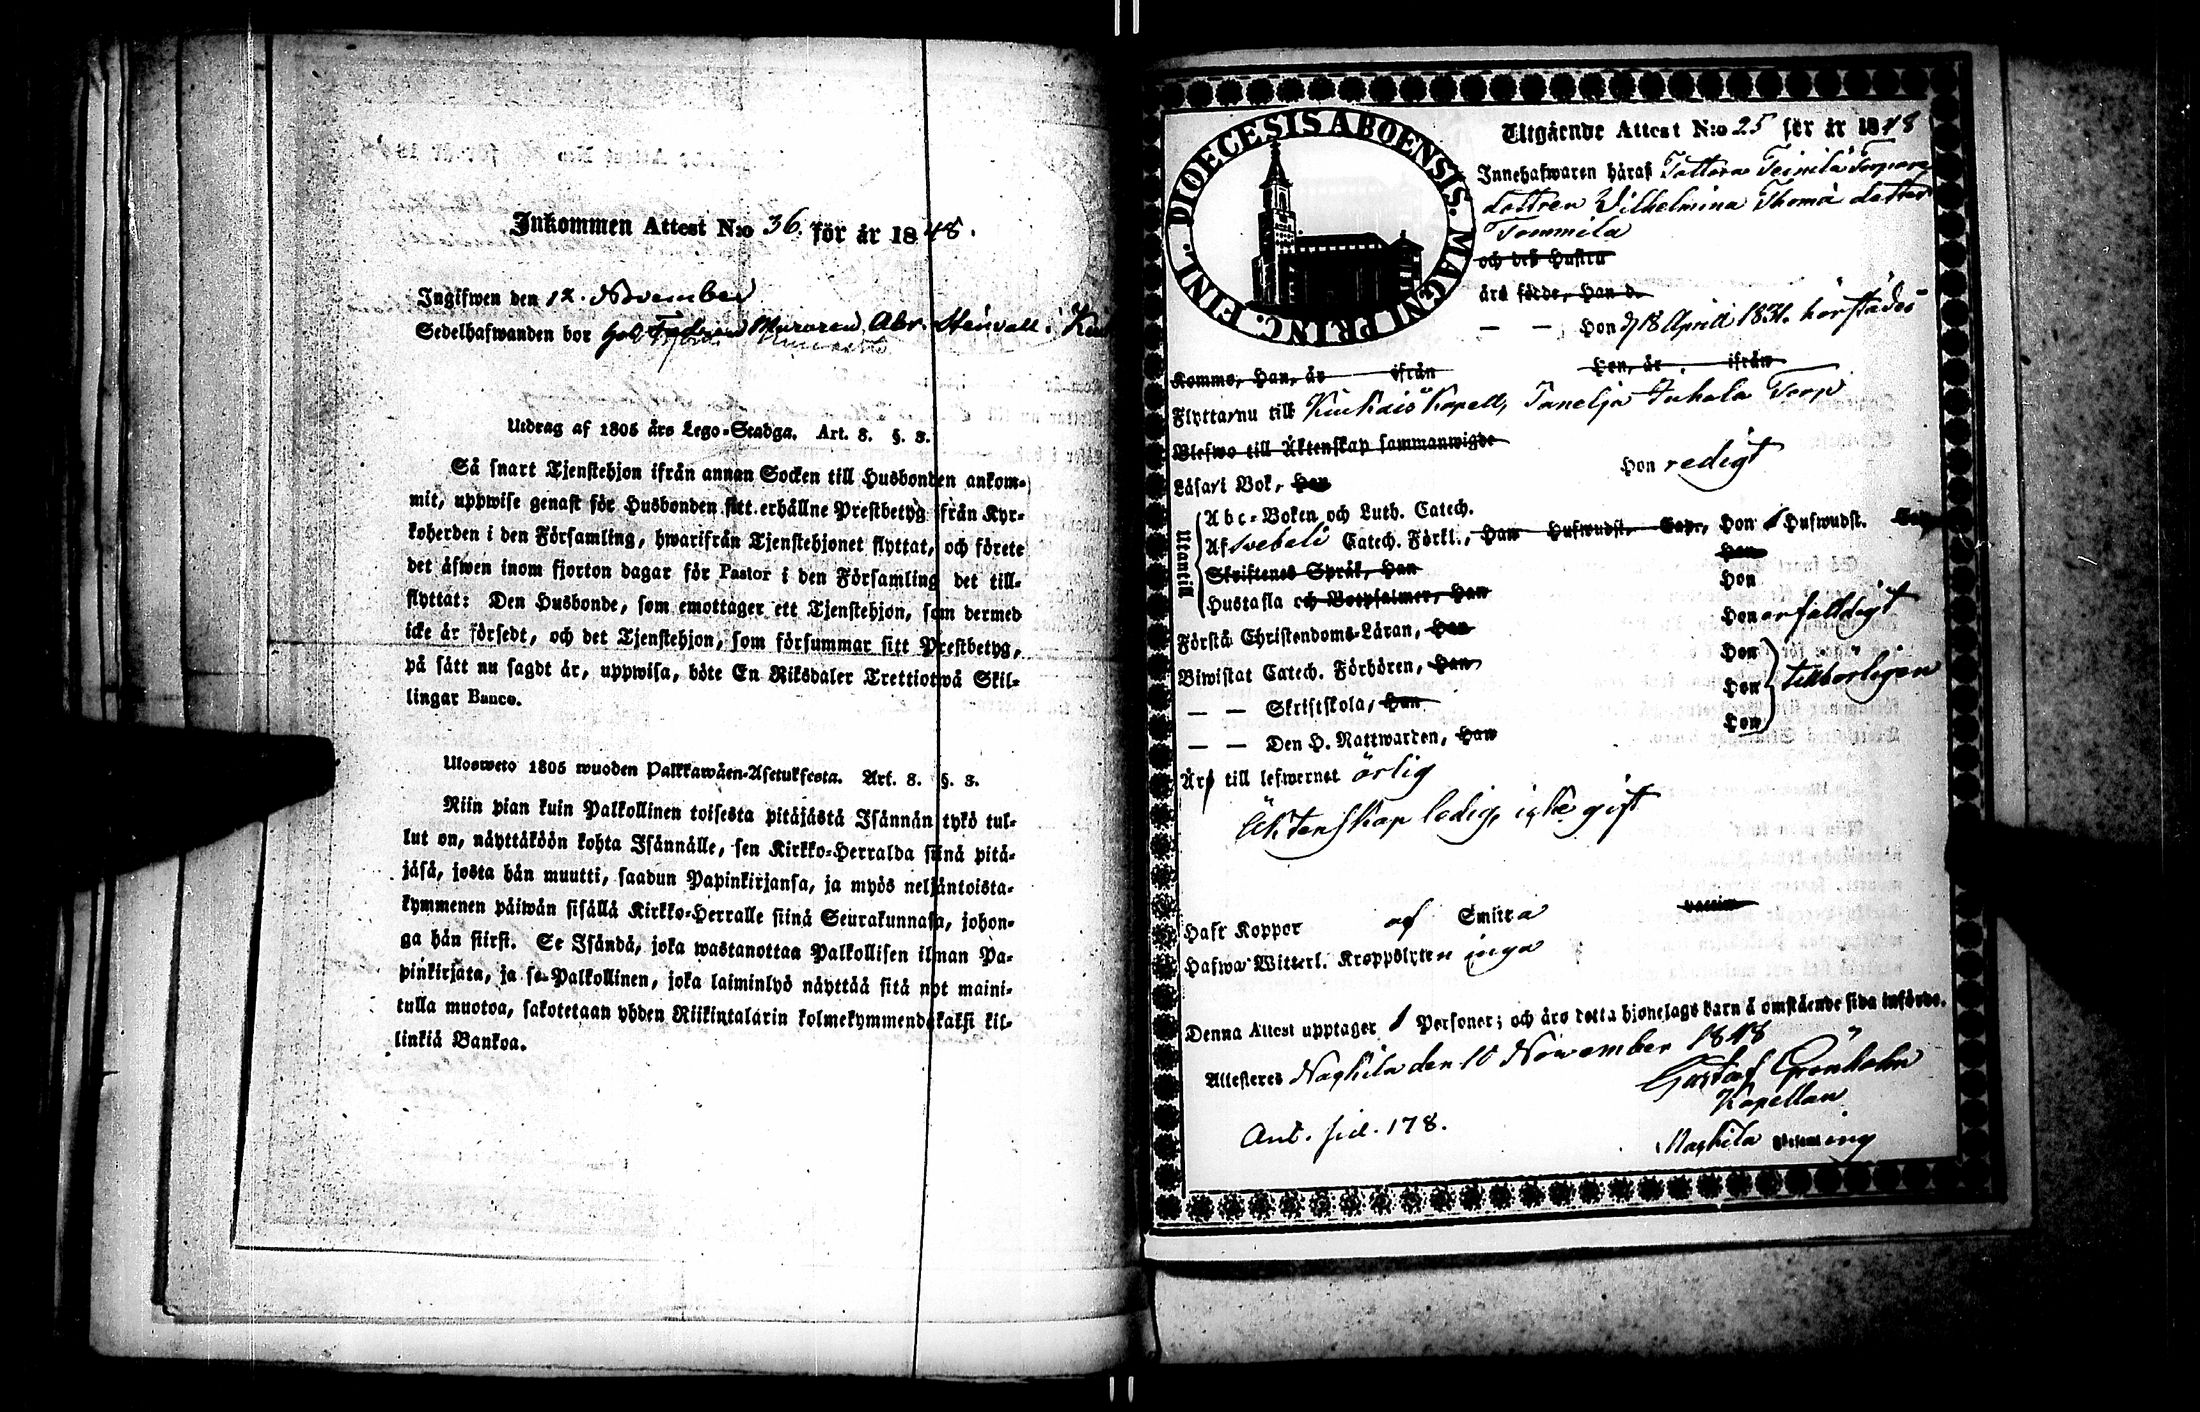 Inkommen Attest N:o 36. för år 1848.
Ingifwen den 12. November
Sedelhafwanden bor Muraren Abr. Steinvall i
Utdrag af 1805 års Lego-Stadga. Art. 8. §. 3.
Så snart Tjenstehjon ifrån annan Socken till Husbonden ankom-
mit, uppwise genast för Husbonden sitt erhållne Prestbetyg ifrån Kyr-
koherden i den Församling, hwarifrån Tjenstehjonet flyttat, och förete
det äfwen inom fjorton dagar för Pastor i den Församling det till-
flyttat: Den Husbonde, som emottager ett Tjenstehjon, som dermed
icke är försedt, och det Tjenstehjon, som försummar sitt Prestbetyg,
på sätt nu sagdt är, uppwisa, böte En Riksdaler Trettiotwå Skil-
lingar Banco.
Ulosweto 1805 wuoden Palkkawäen-Asetuksesta. Art. 8. §. 3.
Niin pian kuin Palkollinen toisesta pitäjästä Isännän tykö tul-
lut on, näyttäköön kohta Isännälle, sen Kirkko-Herralda siinä pitä-
jäsä, josta hän muutti, saadun Papinkirjansa, ja myös neljäntoista-
kymmenen päiwän sisällä Kirkko-Herralle siinä Seurakunnasa, johon-
ga hän siirsi. Se Isändä, joka wastanottaa Palkollisen ilman Pa-
pinkirjata, ja se Palkollinen, joka laiminlyö näyttää sitä nyt maini-
tulla muotoa, sakotetaan yhden Riikintalarin kolmekymmendäkaksi kil-
linkiä Bankoa.
DIOECESIS ABOENSIS. MAGNI PRINC. FINL.
Utgående Attest N:o 25 för år 1848
Innehafwaren häraf Tattara Teinilä Torpare
dottren Vilhelmina Thomä dotter
Tommila
och des hustru
äro födde, Han d.
— — Hon d 18 April 1831. härstädes
Komne, Han, år ifrån Hon, år ifrån
Flytta nu till Kiukais Kapell, Panelja Juhola Torp
Blefwo till Äktenskap sammanwigde
Läsa i Bok, Han Hon redigt
Utantill
Abc-Boken och Luth. Catech.
Af Svebeli Catech. Förkl., Han Hufwudst. Cap., Hon 1 Hufwudst. Cap.
Skriftenes Språk, Han Hon
Hustafla och Botpsalmer, Han Hon
Förstå Christendoms-Läran, Han Hon enfaldigt
Biwistat Catech. Förhören, Han Hon
— — Skriftskola, Han Hon tillbörligen
— — Den H. Nattwarden, Han Hon
Äro till lefwernet ärlig
Äktenskap ledig, icke gift
Haft Koppor af Smitta vaccin
Hafwa Witterl. Kroppslyten inga
Denna Attest upptager 1 Personer; och äro detta hjonelags barn å omstående sida införde.
Attesteres Nackila den 10 November 1848
Gustaf Grönholm
Kapellan
Ant. sid. 178.
Nackila Församling